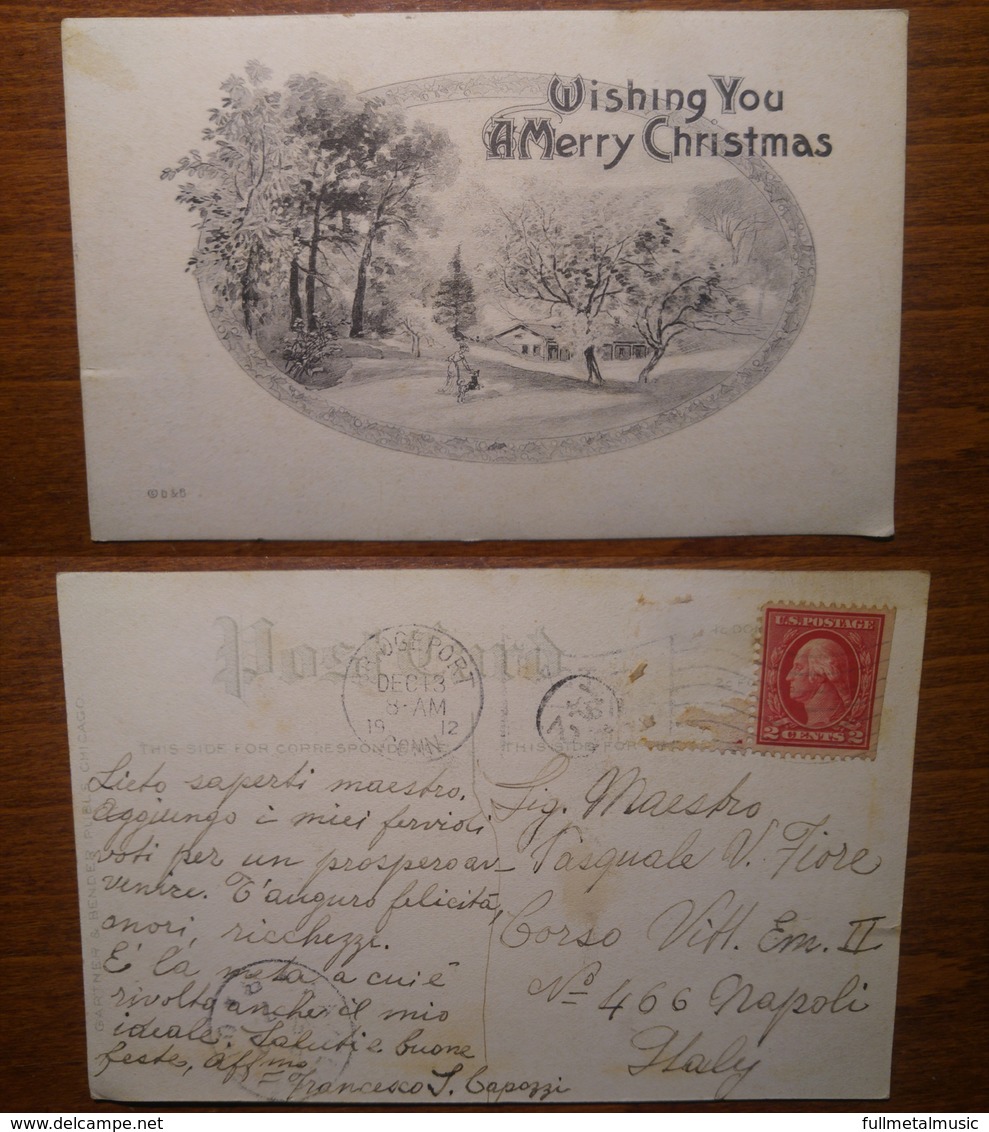 Wishing You
A Merry Christmas
© B & B
Post Card
BRIDGEPORT
DEC 13
8-AM
19 12
CONN.
U.S. POSTAGE
2 CENTS 2
THIS SIDE FOR CORRESPONDENCE
THIS SIDE FOR
GARTNER & BENDER PUBL. CHICAGO
Lieto saperti maestro.
Aggiungo i miei fervidi
voti per un prospero av-
venire. T'auguro felicità,
onori, ricchezze.
E' la meta a cui è
rivolto anche il mio
ideale. Saluti e buone
feste, aff.mo
Francesco S. Capozzi
Sig. Maestro
Pasquale V. Fiore
Corso Vitt. Em. II
No. 466 Napoli
Italy
fullmetalmusic